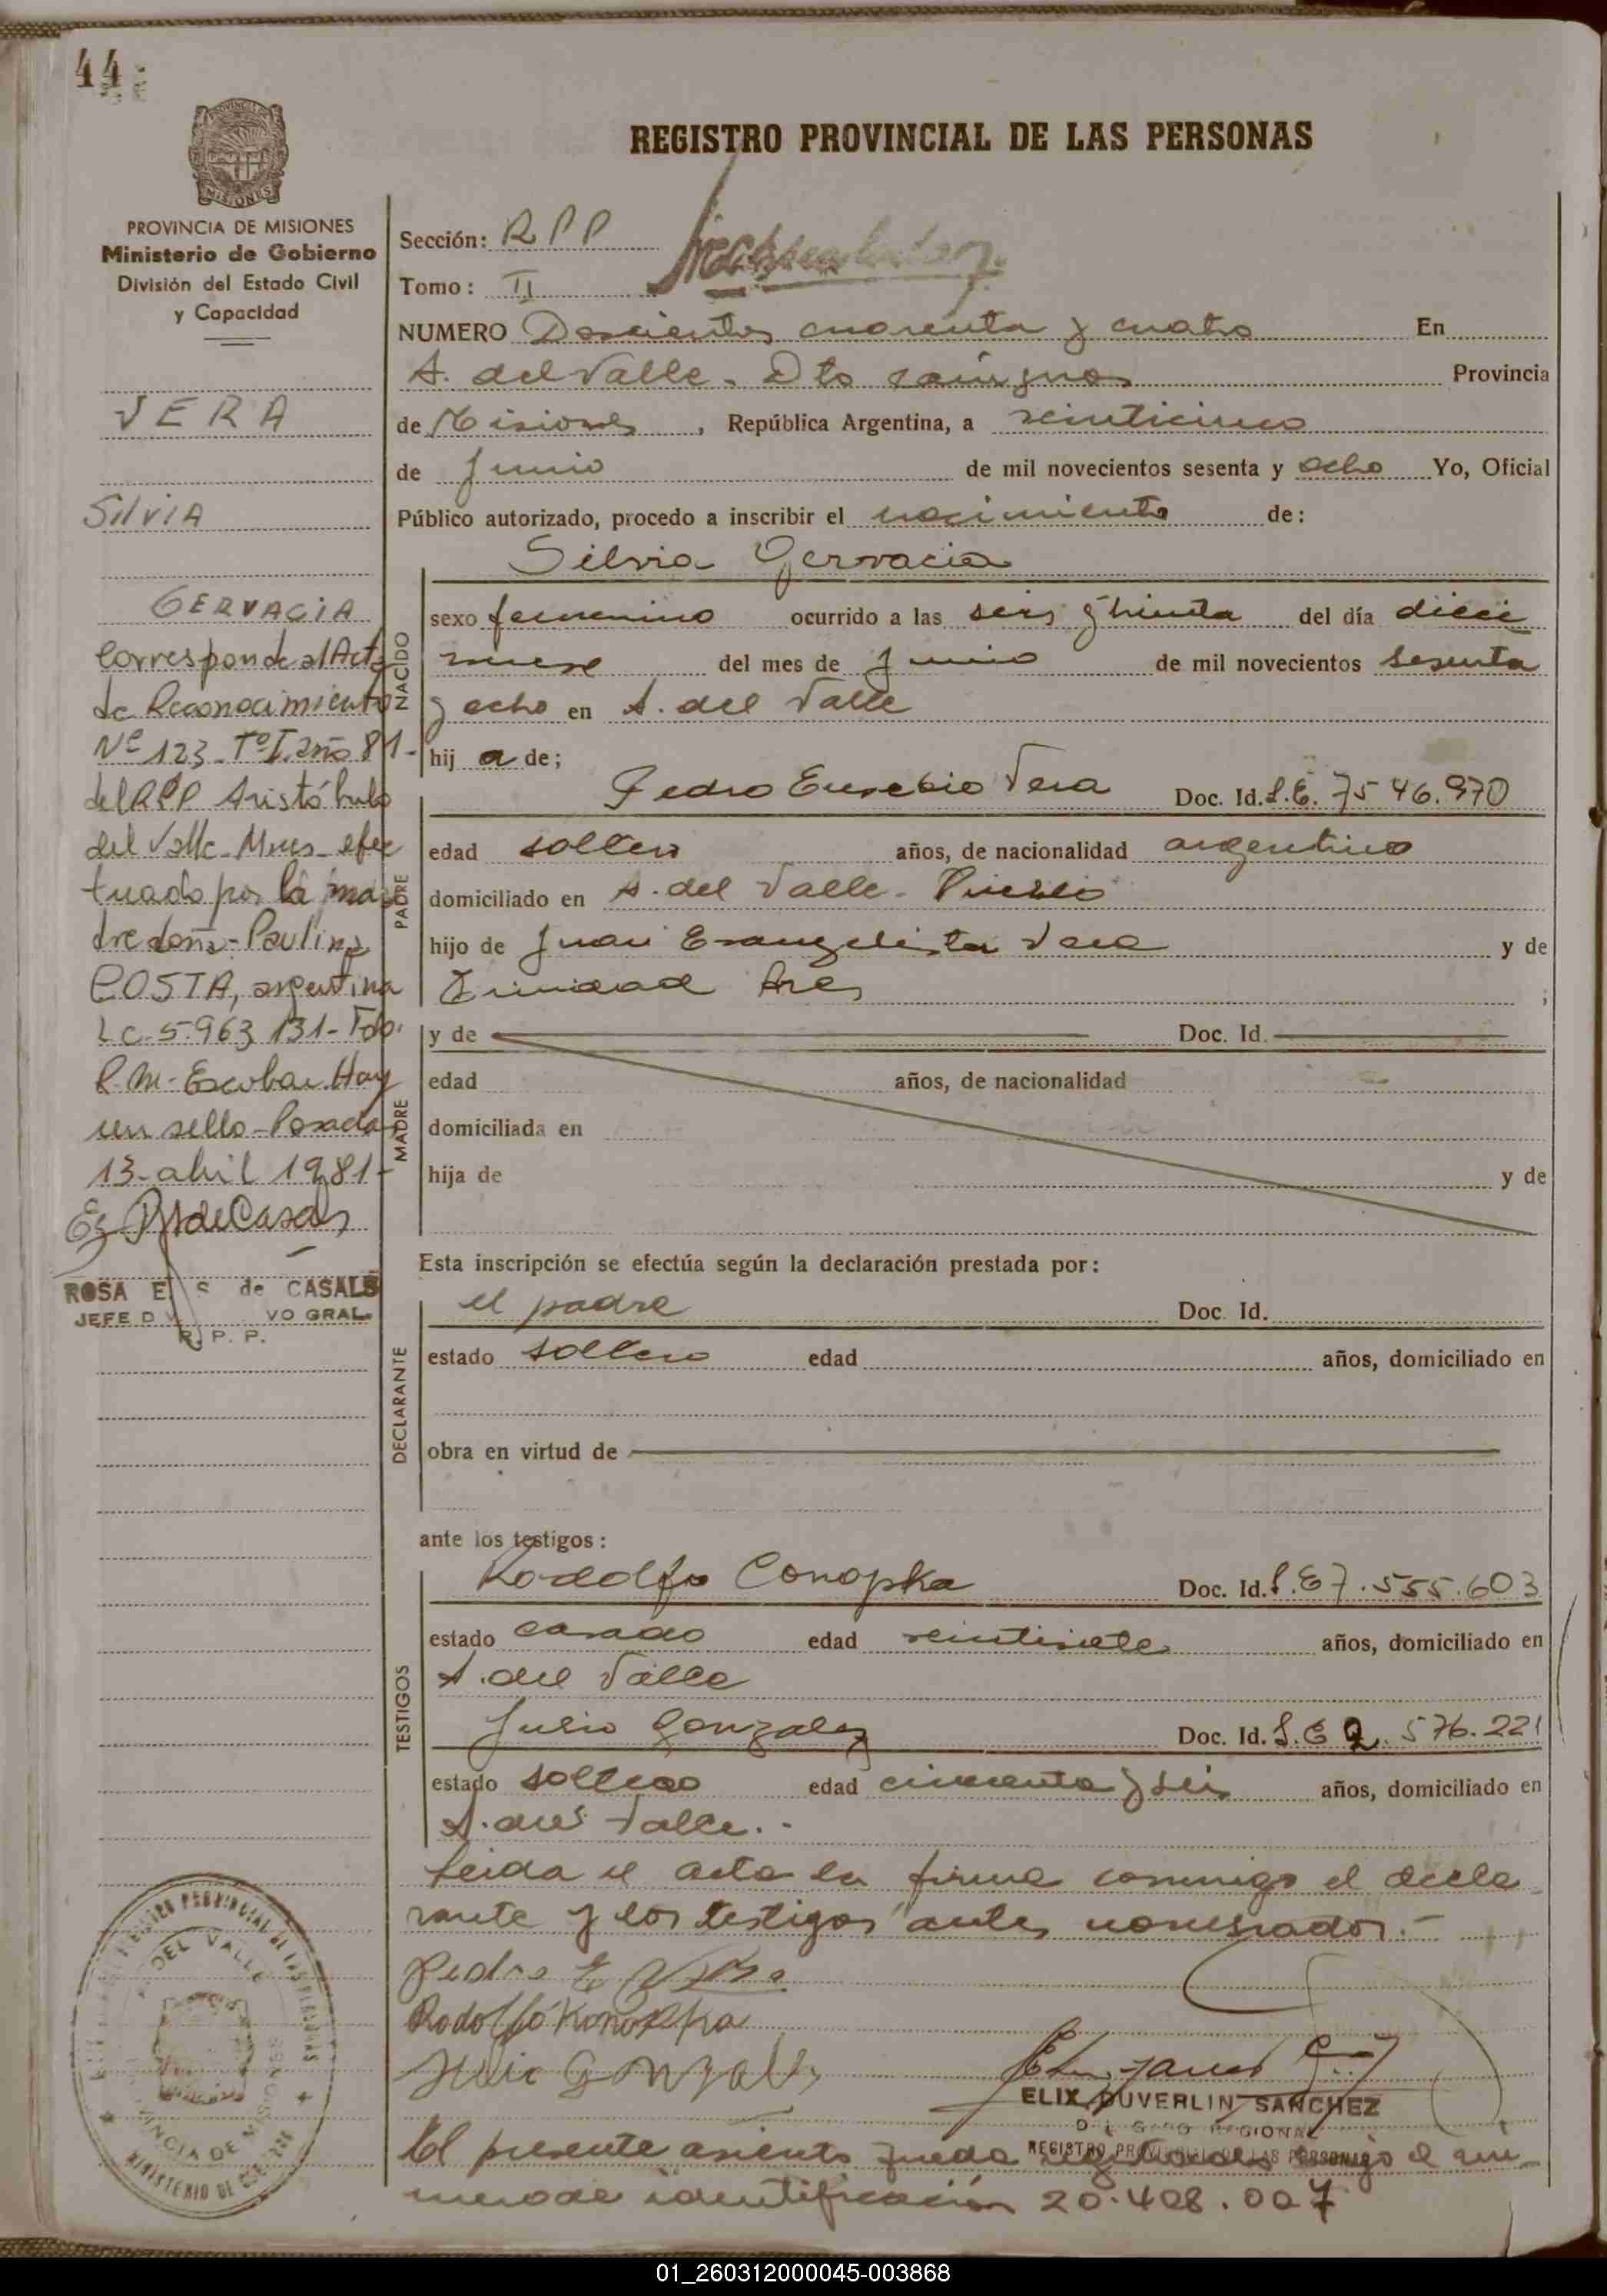 44
REGISTRO PROVINCIAL DE LAS PERSONAS
PROVINCIA DE MISIONES
Ministerio de Gobierno
División del Estado Civil
y Capacidad
VERA
SILVIA
GERVACIA
Corresponde al Acta
de Reconocimiento
Nº 123 - Tº I. año 81-
del RPP Aristóbulo
del Valle - Mnes - efec
tuado por la ma
dre doña - Paulina
COSTA, argentina
L.C. 5.963.131 - Fdo.
R.M. Escobar. Hay
un sello - Posadas
13 - abril 1981 -
ROSA E. S de CASALS
JEFE VO GRAL.
R. P. P.
Sección: RPP
Tomo: II
NUMERO Doscientos cuarenta y cuatro En
A. del Valle - Dto Cainguas Provincia
de Misiones, República Argentina, a veinticinco
de Junio de mil novecientos sesenta y ocho Yo, Oficial
Público autorizado, procedo a inscribir el nacimiento de:
Silvia Gervacia
NACIDO
sexo femenino ocurrido a las seis y treinta del día dieci
nueve del mes de Junio de mil novecientos sesenta
y ocho en A. del Valle
hij a de;
PADRE
Pedro Eusebio Vera Doc. Id. L.E. 7546.970
edad soltero años, de nacionalidad argentino
domiciliado en A. del Valle - Pueblo
hijo de Juan Evangelista Vera y de
Trinidad ;
MADRE
y de Doc. Id.
edad años, de nacionalidad
domiciliada en
hija de y de
Esta inscripción se efectúa según la declaración prestada por:
DECLARANTE
el padre Doc. Id.
estado soltero edad años, domiciliado en
obra en virtud de
ante los testigos:
TESTIGOS
Rodolfo Conopka Doc. Id. L.E 7.555.603
estado casado edad veintisiete años, domiciliado en
A. del Valle
Julio Gonzalez Doc. Id. L.E 2. 576.221
estado soltero edad cincuenta y seis años, domiciliado en
A. del Valle. -
Leida el acta la firma conmigo el decla
rante y los testigos antes nombrados. -
Pedro E Vera
Rodolfo Konopka
Julio Gonzalez
ELIX DUVERLIN SANCHEZ
REGIONAL
REGISTRO PROVINCIAL DE LAS PERSONAS
El presente asiento queda bajo el nú-
mero de identificación 20.408.007
REGISTRO PROVINCIAL DE LAS PERSONAS
DEL VALLE
PROVINCIA DE MISIONES
MINISTERIO DE
01_260312000045-003868